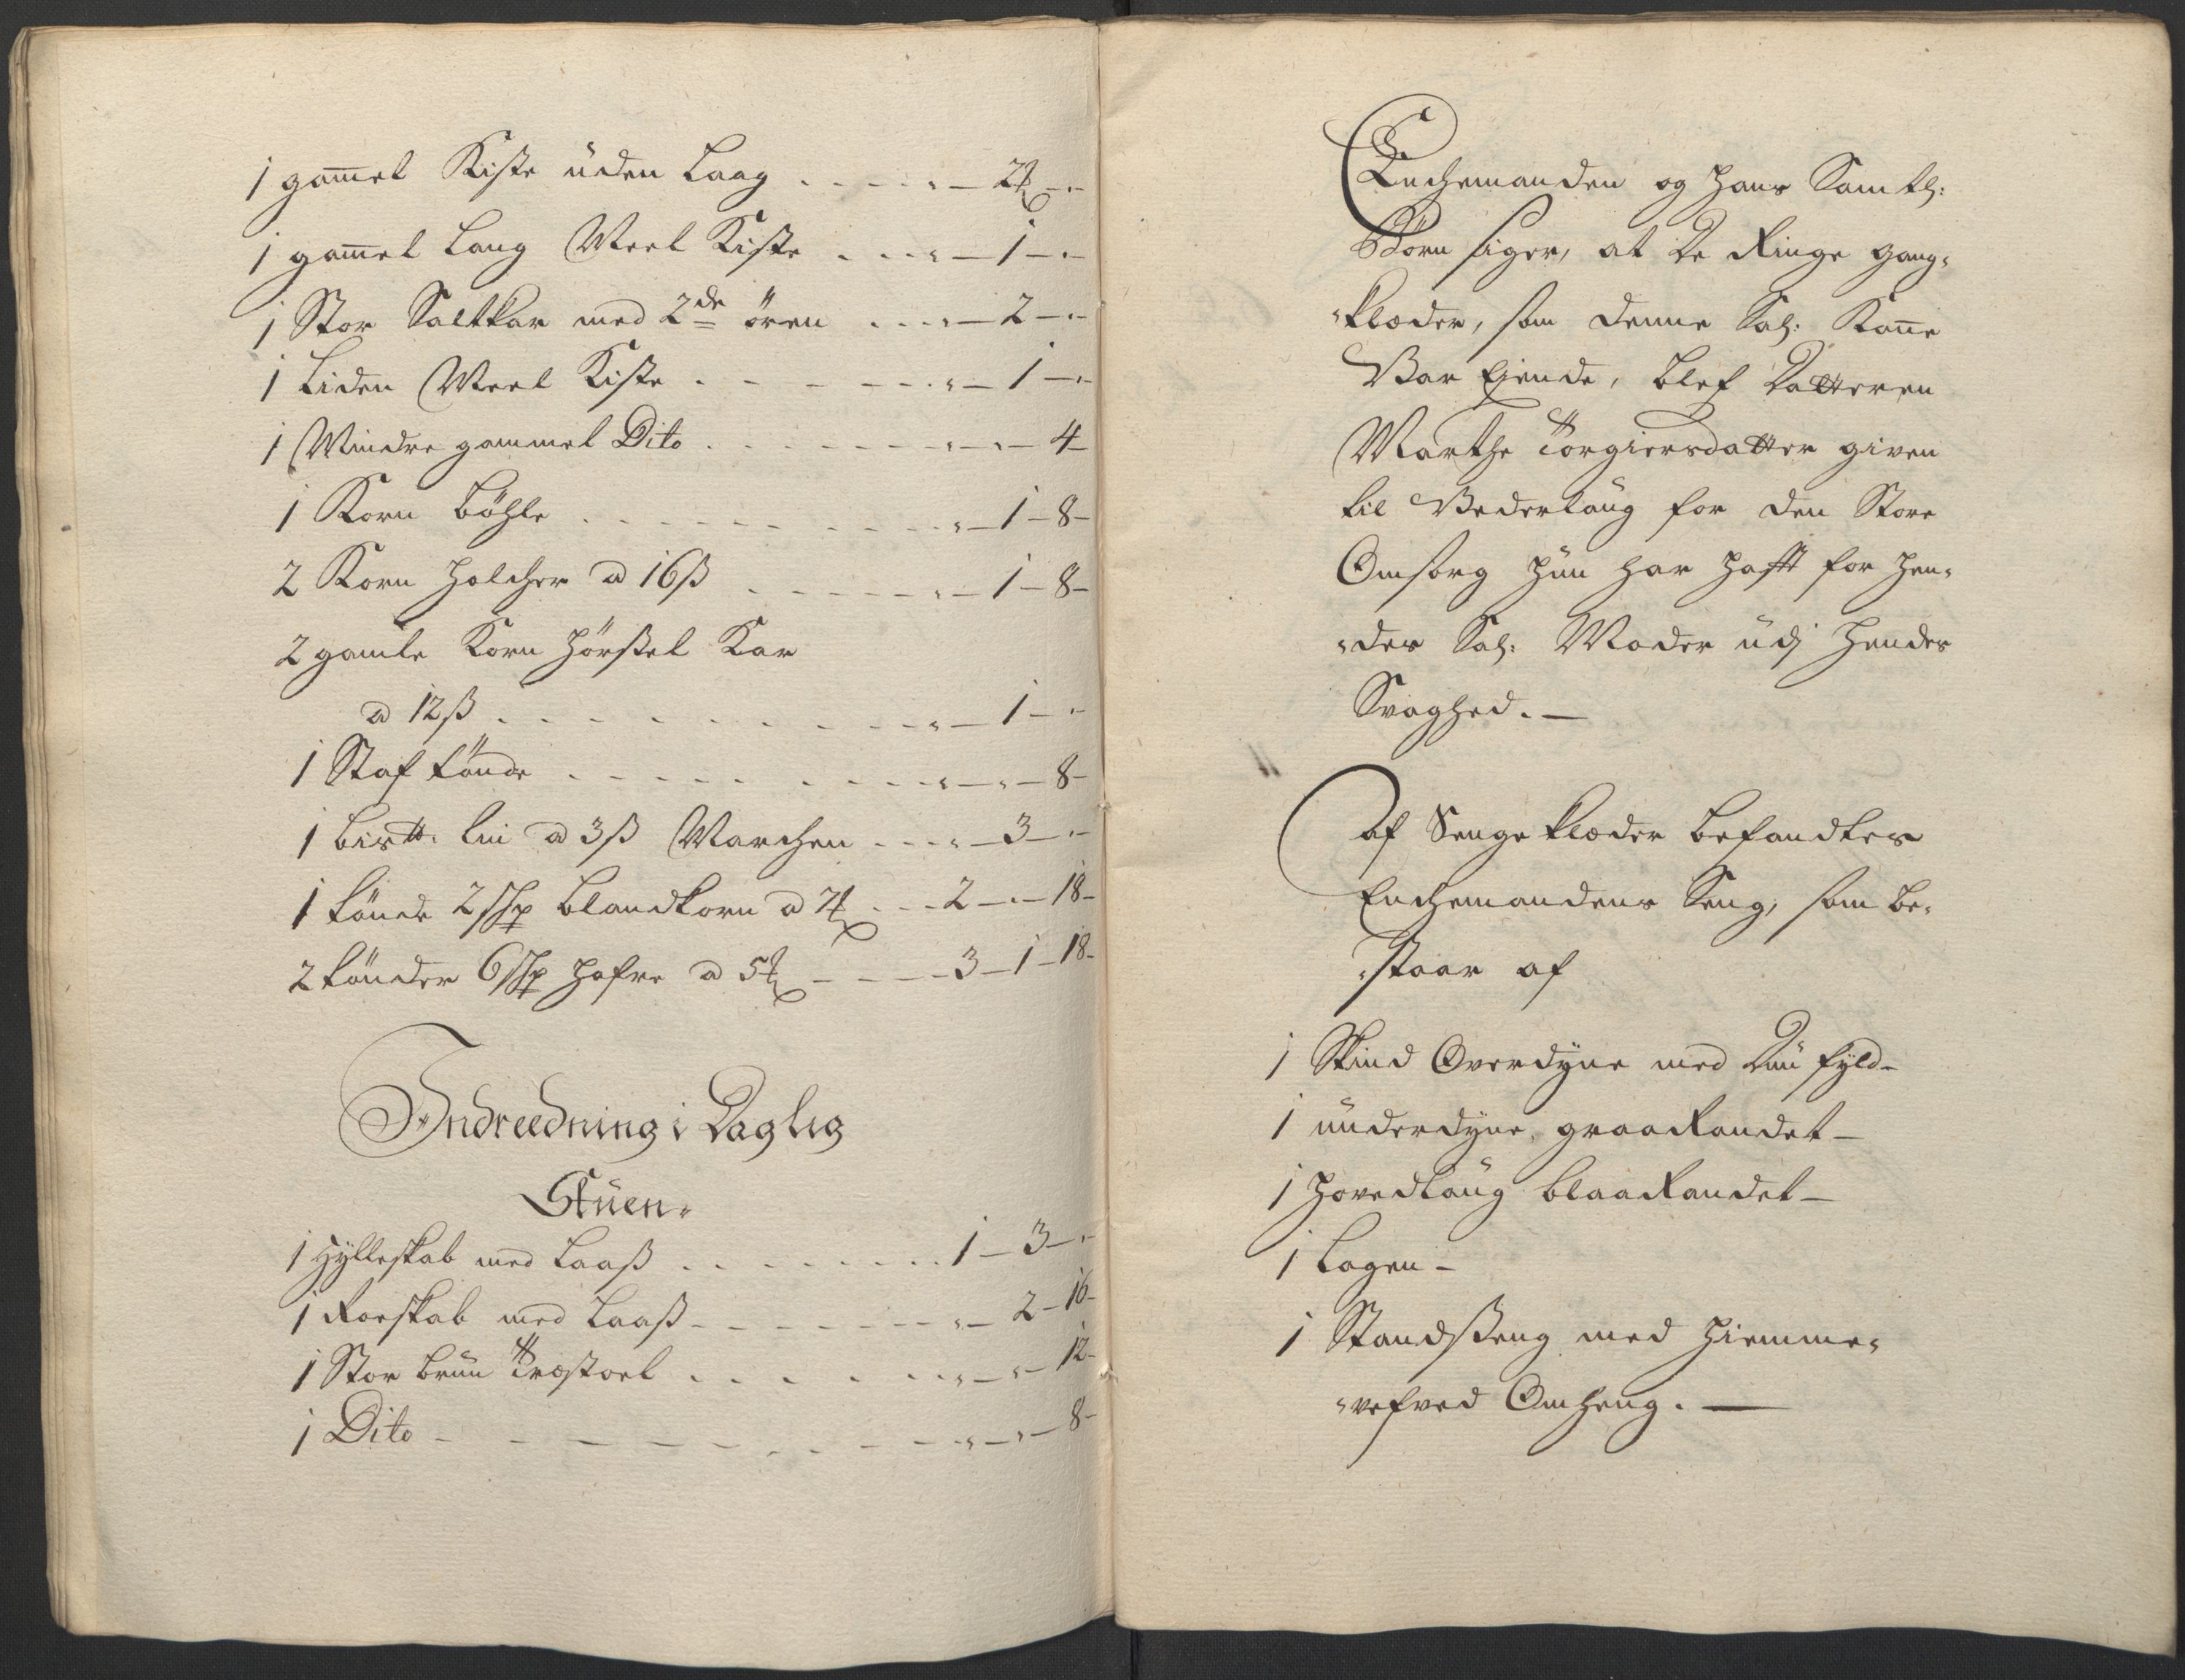 1 gam̄el Kiste uden Laag . . . . „ – 2 ₰ – „
1 gam̄el Lang Meel Kiste . . . „ – 1 – „
1 Stor Saltkar med 2de ören . . . „ – 2 – „
1 Liden Meel Kiste . . . . . „ – 1 – „
1 Mindre gammel Dito . . . . . „ – „ – 4 –
1 Korn Böhle . . . . . „ – 1 – 8 –
2 Korn Holcher a 16 ß . . . . . „ – 1 – 8 –
2 gamle Korn Hörßel Kar
a 12 ß . . . . . „ – 1 – „
1 Staf tönde . . . . . „ – „ – 8 –
1 Bistt: Liin a 3 ß Marchen . . . „ – 3 – „
1 tönde 2 Schp Blandkorn a 7 . . . 2 – „ – 18 –
2 tönder 6 Schp Hafre a 5 – – – 3 – 1 – 18 –
Indreedning i Daglig
Stuen.
1 Hÿlleskab med Laaß . . . . . 1 – 3 – „
1 Roeskab med Laaß . . . . . „ – 2 – 16 –
1 Stor bruun Træstoel . . . . . „ – „ – 12 –
1 Dito . . . . . „ – „ – 8 –
Enchemanden og Hans Samtl:
Börn siger, at De Ringe gang-
klæder, som denne Sal: Kone
Var Ejende, blef Datteren
Marthe Torgiersdatter given
til Vederlaug for den Store
Omsorg hun har hafft for Hen-
des Sal: Moder udj Hendes
Svaghed. –
Af Sengeklæder befandtes
Enchemandens Seng, som be-
staar af
1 Skind Overdyne med Duun fyld –
1 underdyne, graaRandet –
1 Hovedlaug blaaRandet –
1 Lagen –
1 Standsßeng med Hiemme-
vefved Omheng. –